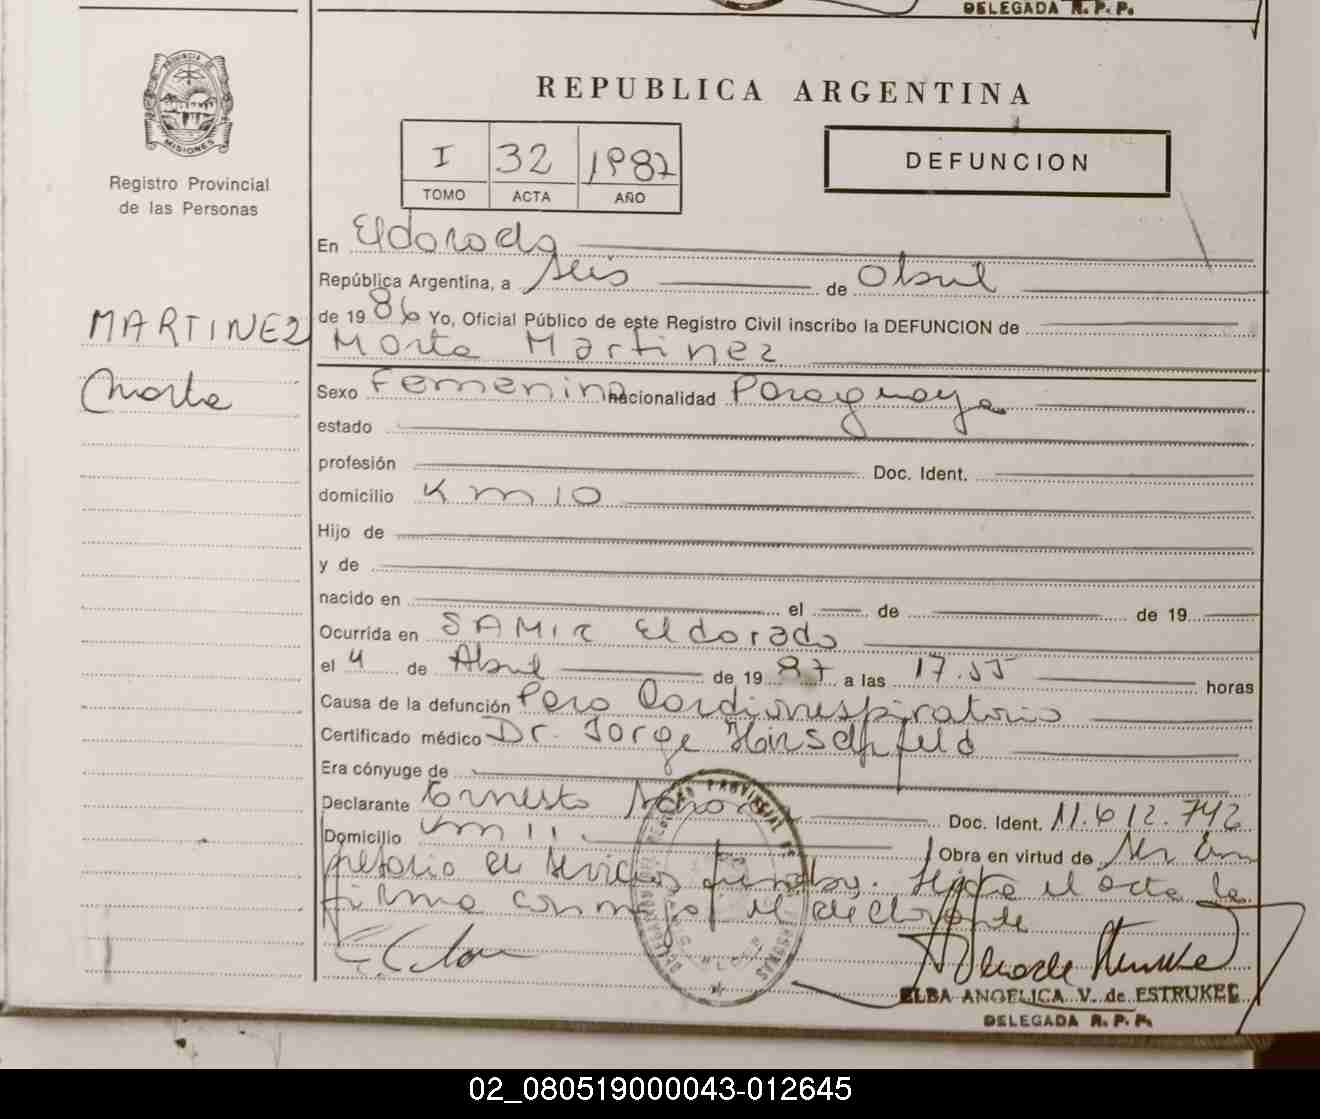 DELEGADA R. P. P.
PROVINCIA DE
MISIONES
Registro Provincial
de las Personas
MARTINEZ
Marta
REPUBLICA ARGENTINA
I 32 1987
TOMO ACTA AÑO
DEFUNCION
En Eldorado
República Argentina, a seis de Abril
de 1986 Yo, Oficial Público de este Registro Civil inscribo la DEFUNCION de
Marta Martinez
Sexo Femenino nacionalidad Paraguaya
estado
profesión Doc. Ident.
domicilio Km 10
Hijo de
y de
nacido en el de de 19
Ocurrida en SAMIC Eldorado
el 4 de Abril de 1987 a las 17.55 horas
Causa de la defunción Paro Cardiorespiratorio
Certificado médico Dr. Jorge Hirschfeld
Era cónyuge de
Declarante Ernesto Doc. Ident. 11.612.742
Domicilio Km 11. Obra en virtud de ser em
presario de servicios funebres. el acta la
firma conmigo el declarante
ELBA ANGELICA V. de ESTRUKEL
DELEGADA R. P. P.
02_080519000043-012645